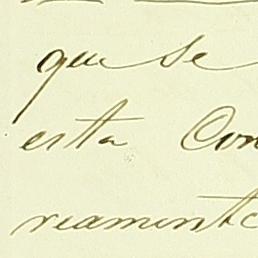 que se
esta Con
reamente